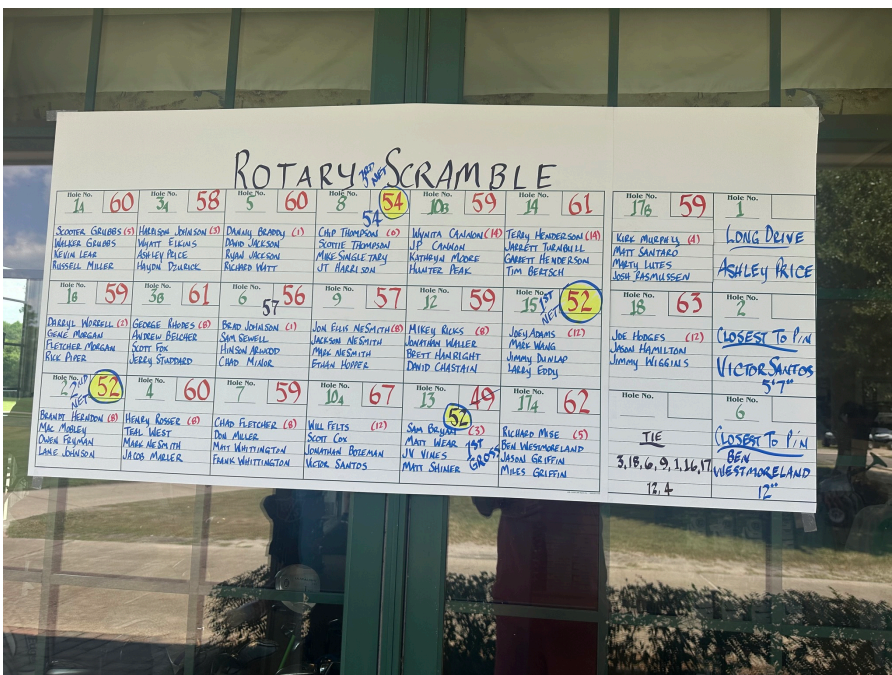 ROTARY SCRAMBLE
3RD NET
Hole No. 1A 60
SCOOTER GRUBBS (5)
WALKER GRUBBS
KEVIN LEAR
RUSSELL MILLER
Hole No. 3A 58
HARRISON JOHNSON (3)
WYATT ELKINS
ASHLEY PRICE
HAYDN DZURICK
Hole No. 5 60
DANNY BRADDY (1)
DAVID JACKSON
RYAN JACKSON
RICHARD WATT
Hole No. 8 54
54
CHIP THOMPSON (6)
SCOTTIE THOMPSON
MIKE SINGLETARY
JT HARRISON
Hole No. 10B 59
WYNITA CANNON (14)
JP CANNON
KATHRYN MOORE
HUNTER PEAK
Hole No. 14 61
TERRY HENDERSON (14)
JARRETT TURNBULL
GARRETT HENDERSON
TIM BERTSCH
Hole No. 17B 59
KIRK MURPHY (4)
MATT SANTARO
MARTY LUTES
JOSH RASMUSSEN
Hole No. 1
LONG DRIVE
ASHLEY PRICE
Hole No. 1B 59
DARRYL WORRELL (2)
GENE MORGAN
FLETCHER MORGAN
RICK PIPER
Hole No. 3B 61
GEORGE RHODES (8)
ANDREW BELCHER
SCOTT FOX
JERRY STUDDARD
Hole No. 6 57 56
BRAD JOHNSON (1)
SAM SEWELL
HINSON
CHAD MINOR
Hole No. 9 57
JON ELLIS NESMITH (8)
JACKSON NESMITH
MARK NESMITH
ETHAN HOPPER
Hole No. 12 59
MIKEY RICKS (8)
JONATHAN WALLER
BRETT HANRIGHT
DAVID CHASTAIN
Hole No. 15 1ST NET 52
JOEY ADAMS (12)
MARK WANG
JIMMY DUNLAP
LARRY EDDY
Hole No. 18 63
JOE HODGES (12)
JASON HAMILTON
JIMMY WIGGINS
Hole No. 2
CLOSEST TO PIN
VICTOR SANTOS
5'7"
Hole No. 2 2ND NET 52
BRANDT HERNDON (8)
MAC MOBLEY
OWEN FRYMAN
LANE JOHNSON
Hole No. 4 60
HENRY ROSSER (8)
TEAL WEST
MARK NESMITH
JACOB MARLER
Hole No. 7 59
CHAD FLETCHER (8)
DON MILLER
MATT WHITTINGTON
FRANK WHITTINGTON
Hole No. 10A 67
WILL FELTS (12)
SCOTT COX
JONATHAN BOZEMAN
VICTOR SANTOS
Hole No. 13 49
52
SAM BRYANT (3)
MATT WEAR
JV VINES
MATT SHINER
1ST GROSS
Hole No. 17A 62
RICHARD MISE (5)
BEN WESTMORELAND
JASON GRIFFIN
MILES GRIFFIN
Hole No.
TIE
3,18,6,9,1,16,17,
12,4
Hole No. 6
CLOSEST TO PIN
BEN
WESTMORELAND
12"